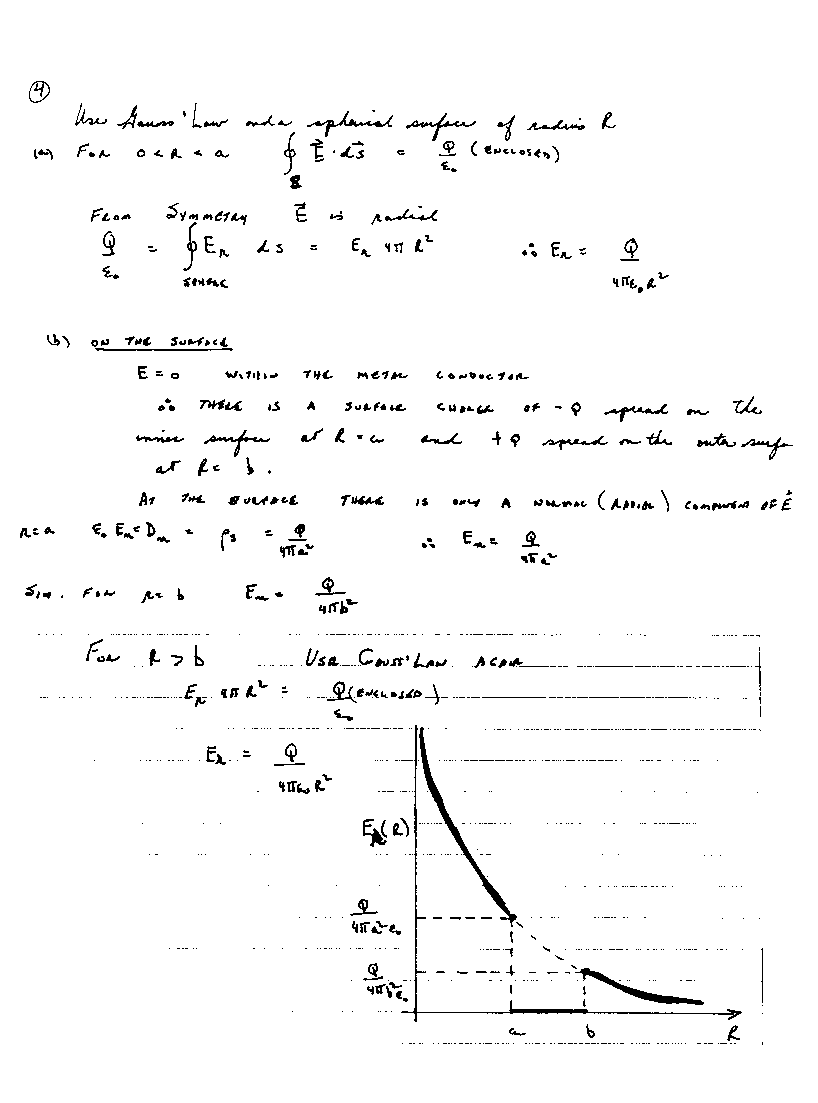 ④
Use Gauss' Law and a spherical surface of radius R
(a) FOR 0 < R < a ∮_S E⃗ · dS⃗ = Q/ε₀ (ENCLOSED)
FROM SYMMETRY E⃗ is radial
Q/ε₀ = ∮_SPHERE E_R dS = E_R 4π R² ∴ E_R = Q/4πε₀R²
(b) ON THE SURFACE
E = 0 WITHIN THE METAL CONDUCTOR
∴ THERE IS A SURFACE CHARGE OF - Q spread on the
inner surface at R = a and + Q spread on the outer surfa
at R = b.
AT THE SURFACE THERE IS ONLY A NORMAL (RADIAL) COMPONENT OF E⃗
R=a ε₀ E_n = D_n = ρ_s = Q/4πa² ∴ E_n = Q/4πa²
SIM. FOR R = b E_n = Q/4πb²
FOR R > b USE GAUSS' LAW AGAIN
E_R 4π R² = Q(ENCLOSED)/ε₀
E_R = Q/4πε₀R²
E_R(R)
Q/4πa²ε₀
Q/4πb²ε₀
a b R